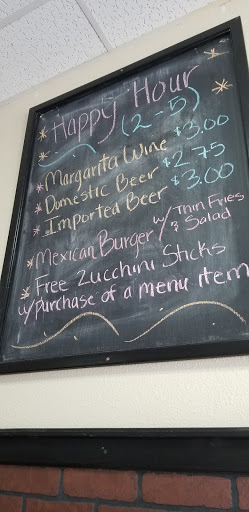 Happy Hour
(2-5)
* Margarita Wine $3.00
* Domestic Beer $2.75
* Imported Beer $3.00
* Mexican Burger w/ Thin Fries
& Salad
* Free Zucchini Sticks
w/ purchase of a menu item